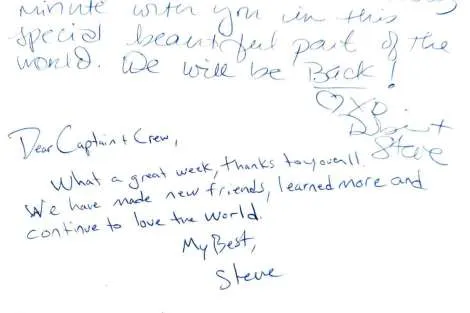 minute with you in this
special beautiful part of the
world. We will be Back!
♡XO
&
Steve
Dear Captain + Crew,
What a great week, thanks to you all.
We have made new friends, learned more and
continue to love the world.
My Best,
Steve